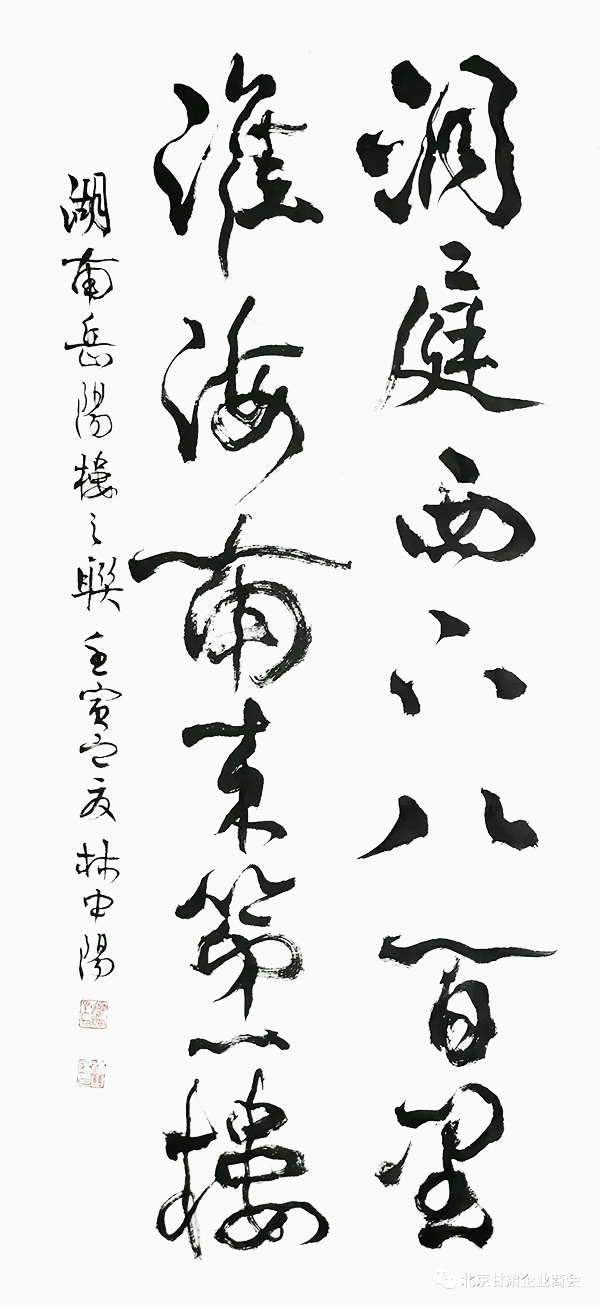 洞庭西下八百里
淮海南来第一楼
湖南岳陽楼之联 壬寅之夏 林中陽
北京甘肃企业商会